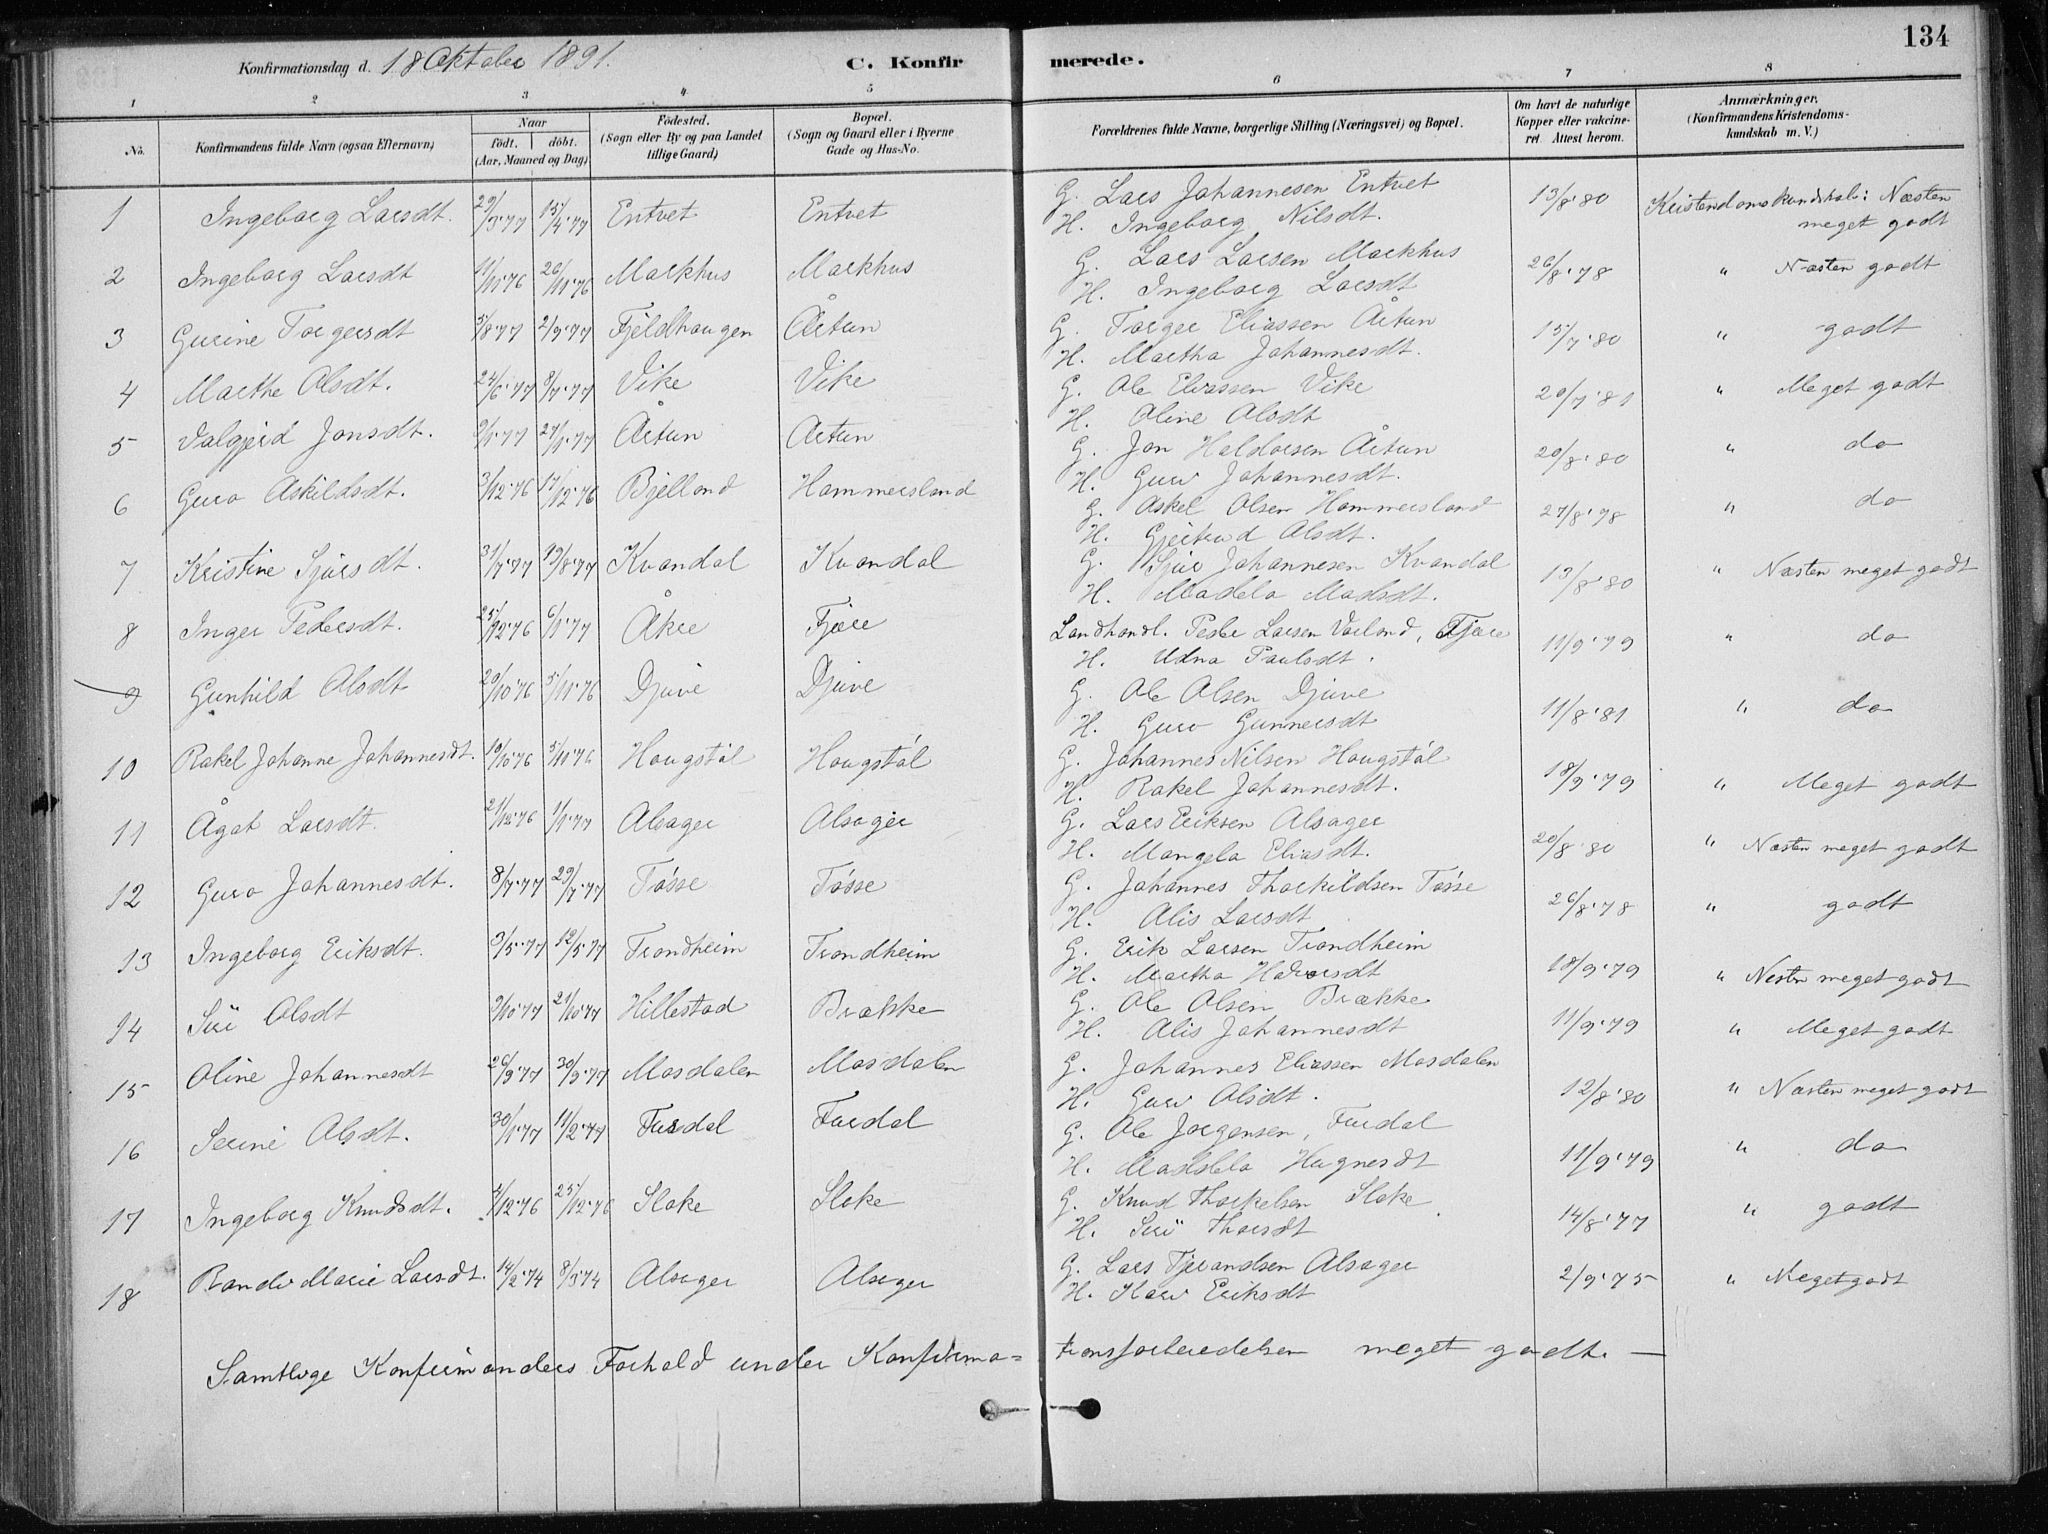 134
Konfirmationsdag d. 18 Oktober 1891. C. Konfirmerede.
1 2 3 4 5 6 7 8
No. Konfirmandens fulde Navn (ogsaa Efternavn) Naar født. døbt. (Aar, Maaned og Dag) Fødested. (Sogn eller By og paa Landet tillige Gaard) Bopæl. (Sogn og Gaard eller i Byerne Gade og Hus-No. Forældrenes fulde Navne, borgerlige Stilling (Næringsvei) og Bopæl. Om havt de naturlige Kopper eller vaccineret. Attest herom. Anmærkninger. (Konfirmandens Kristendomskundskab m. V.)
1 Ingeborg Larsdt. 29/3.77 15/4.77 Entvet Entvet G. Lars Johannesen Entvet 13/8.80 Kristendomskundskab: Næsten
H. Ingeborg Nilsdt. meget godt
2 Ingeborg Larsdt 11/11.76 26/11.76 Markhus Markhus G. Lars Larsen Markhus 26/8.78 " Næsten godt
H. Ingeborg Larsdt
3 Gurine Torgersdt 5/8.77 2/9.77 Fjeldhaugen Årtun G. Torger Eliassen Årtun 15/7.80 " godt
H. Martha Johannesdt.
4 Marthe Olsdt. 24/6.77 8/7.77 Vike Vike G. Ole Eliassen Vike 20/7.81 " Meget godt
H. Oline Olsdt
5 Valgjerd Jonsdt. 9/1.77 27/1.77 Årtun Artun G. Jon Haldorsen Årtun 20/8.80 " do
H. Guro Johannesdt.
6 Guro Askildsdt. 3/12.76 17/12.76 Bjelland Hammersland G. Askel Olsen Hammersland 27/8.78 " do
H. Gjertrud Olsdt.
7 Kristine Sjursdt. 31/7.77 19/8.77 Kvandal Kvandal G. Sjur Johannesen Kvandal 13/8.80 " Næsten meget godt
H. Madela Madsdt.
8 Inger Pedersdt. 25/12.76 6/1.77 Åkre Fjære Landhandl. Peder Larsen Varland, Fjære 11/9.79 " do
H. Udna Paulsdt.
9 Gunhild Olsdt 20/10.76 5/11.76 Djuve Djuve G. Ole Olsen Djuve 11/8.81 " do
H. Guro Gunnersdt
10 Rakel Johanne Johannesdt. 10/10.76 5/11.76 Haugstøl Haugstøl G. Johannes Nilsen Haugstøl 18/9.79 " Meget godt
H. Rakel Johannesdt.
11 Ågat Larsdt. 21/12.76 1/1.77 Alsager Alsager G. Lars Eriksen Alsager 20/8.80 " Næsten meget godt
H. Mangela Eliasdt.
12 Guro Johannesdt. 8/7.77 29/7.77 Tøsse Tøsse G. Johannes Thorkildsen Tøsse 26/8.78 " godt
H. Alis Larsdt
13 Ingeborg Eriksdt. 3/5.77 12/5.77 Trondheim Trondheim G. Erik Larsen Trondheim 18/9.79 " Nesten meget godt
H. Martha Halvorsdt
14 Siri Olsdt 9/10.77 21/10.77 Hillestad Brække G. Ole Olsen Brække 11/9.79 " Meget godt
H. Alis Johannesdt
15 Oline Johannesdt 26/9.77 30/9.77 Mosdalen Mosdalen G. Johannes Eliassen Mosdalen 12/8.80 " Næsten meget godt
H. Guro Olsdt.
16 Serine Olsdt. 30/1.77 11/2.77 Furdal Furdal G. Ole Jorgensen, Furdal 11/9.79 " do
H. Maddela Hagnesdt
17 Ingeborg Knudsdt. 4/12.76 25/12.76 Slake Slake G. Knud Thorkelsen Slake 14/8.77 " godt
H. Siri Thorsdt
18 Randi Marie Larsdt. 14/2.74 8/3.74 Alsager Alsager G. Lars Tjerandsen Alsager 2/9.75 " Meget godt
H. Kari Eriksdt
Samtlige Konfirmanders Forhold under Konfirma=tionsforberedelsen meget godt.